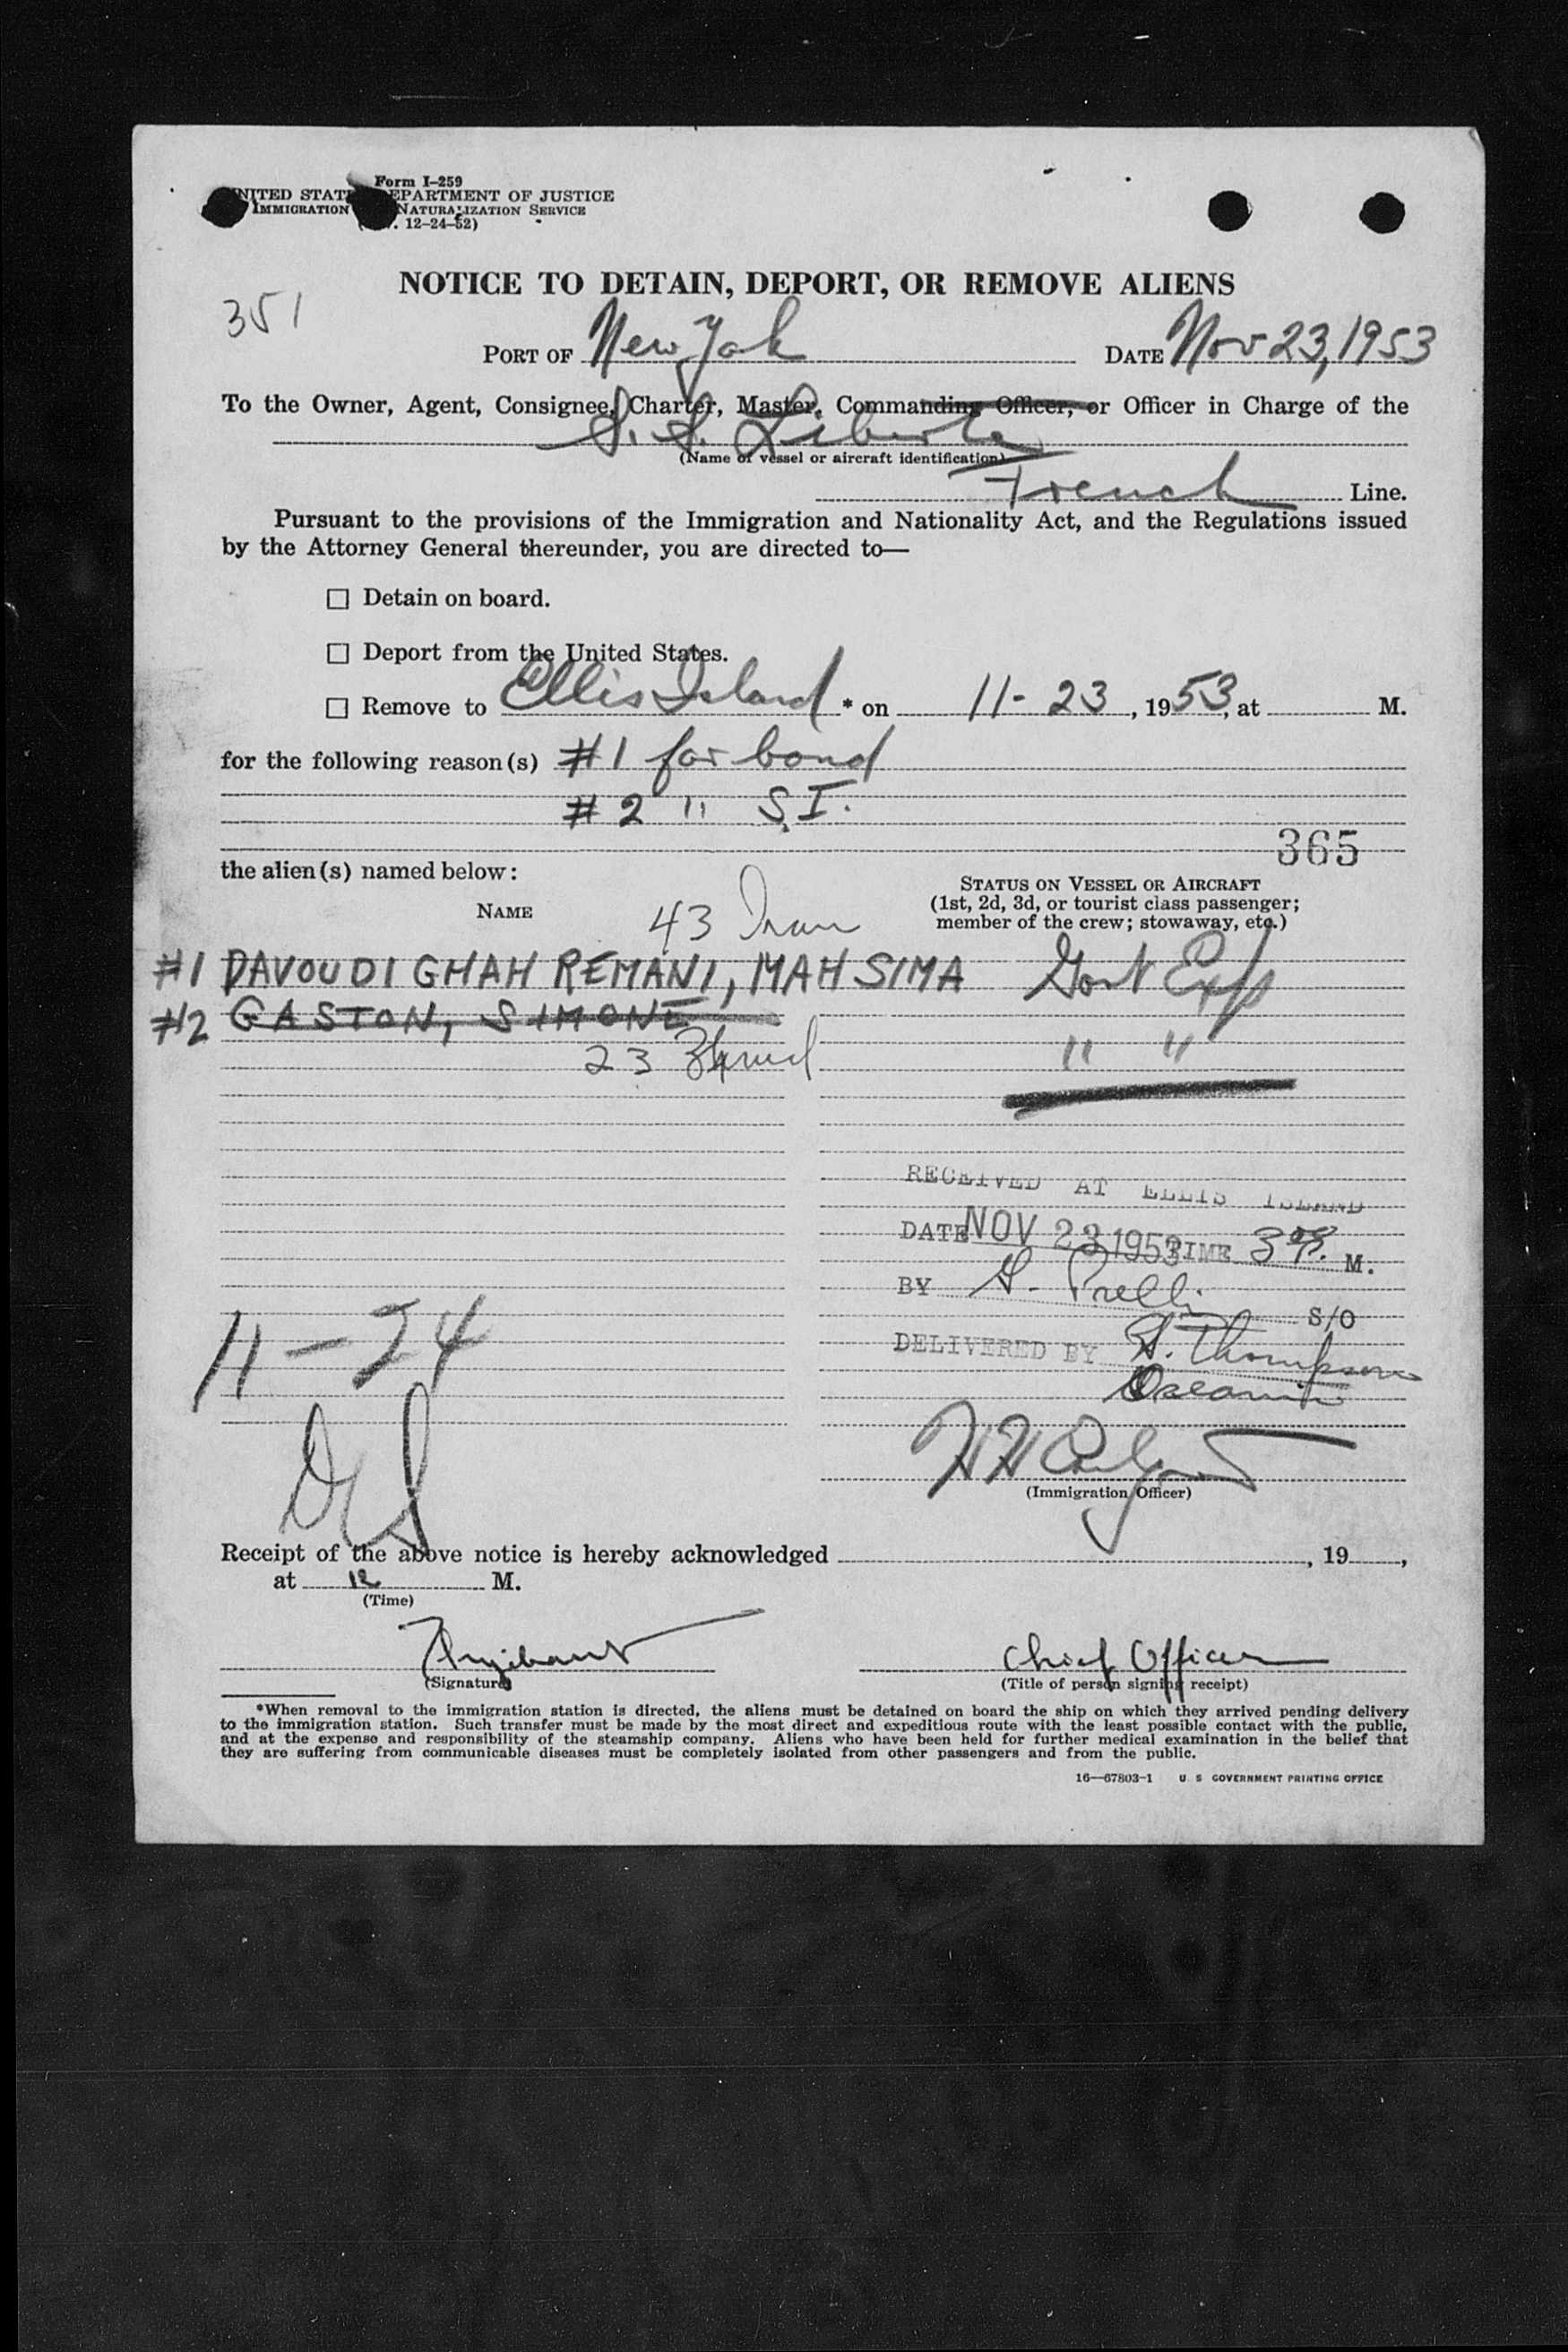 Form I-259
UNITED STATES DEPARTMENT OF JUSTICE
IMMIGRATION NATURALIZATION SERVICE
12-24-52)
NOTICE TO DETAIN, DEPORT, OR REMOVE ALIENS
351
PORT OF New York DATE Nov 23, 1953
To the Owner, Agent, Consignee, Charter, Master, Commanding Officer, or Officer in Charge of the
S.S. Liberte
(Name of vessel or aircraft identification)
French Line.
Pursuant to the provisions of the Immigration and Nationality Act, and the Regulations issued
by the Attorney General thereunder, you are directed to—
☐ Detain on board.
☐ Deport from the United States.
☐ Remove to Ellis Island * on 11-23, 1953, at M.
for the following reason(s) #1 for bond
#2 " S.I.
365
the alien(s) named below:
NAME
STATUS ON VESSEL OR AIRCRAFT
(1st, 2d, 3d, or tourist class passenger;
member of the crew; stowaway, etc.)
43 Iran
#1 DAVOUDI GHAH REMANI, MAH SIMA Govt Exp
#2 GASTON, SIMONE
23 " "
RECEIVED AT ELLIS ISLAND
DATE NOV 23 1953 TIME M.
BY S/O
DELIVERED BY Thompson
11-24
(Immigration Officer)
Receipt of the above notice is hereby acknowledged , 19 ,
at 12 M.
(Time)
Chief Officer
(Signature) (Title of person signing receipt)
*When removal to the immigration station is directed, the aliens must be detained on board the ship on which they arrived pending delivery
to the immigration station. Such transfer must be made by the most direct and expeditious route with the least possible contact with the public,
and at the expense and responsibility of the steamship company. Aliens who have been held for further medical examination in the belief that
they are suffering from communicable diseases must be completely isolated from other passengers and from the public.
16—67803-1 U S GOVERNMENT PRINTING OFFICE